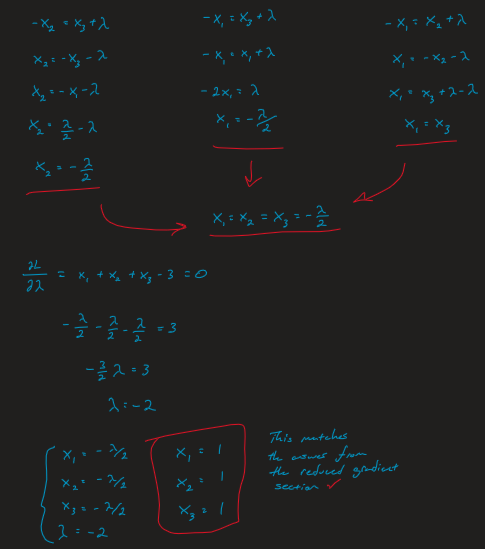 -x₂ = x₃ + λ
x₂ = -x₃ - λ
x₂ = -x₁ - λ
x₂ = λ/2 - λ
x₂ = -λ/2
-x₁ = x₃ + λ
-x₁ = x₁ + λ
-2x₁ = λ
x₁ = -λ/2
-x₁ = x₂ + λ
x₁ = -x₂ - λ
x₁ = x₃ + λ - λ
x₁ = x₃
x₁ = x₂ = x₃ = -λ/2
∂L/∂λ = x₁ + x₂ + x₃ - 3 = 0
-λ/2 - λ/2 - λ/2 = 3
-3/2 λ = 3
λ = -2
x₁ = -λ/2
x₂ = -λ/2
x₃ = -λ/2
λ = -2
x₁ = 1
x₂ = 1
x₃ = 1
This matches
the answer from
the reduced gradient
section ✓